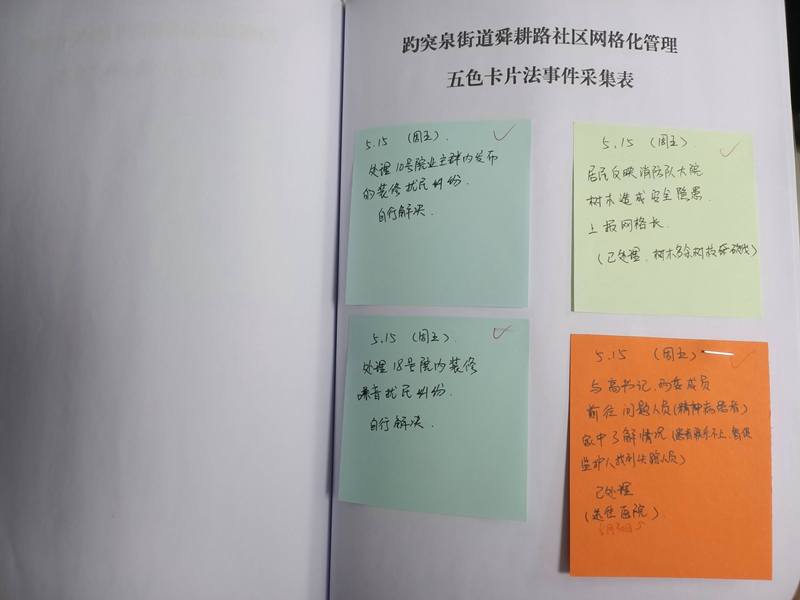 趵突泉街道舜耕路社区网格化管理
五色卡片法事件采集表
5.15 (周五).
处理10号院业主群内发布
的装修扰民纠纷.
自行解决.
5.15 (周五).
居民反映消防队大院
树木造成安全隐患.
上报网格长.
(已处理.树木多余树枝砍伐)
5.15 (周五).
处理18号院内装修
噪音扰民纠纷.
自行解决.
5.15 (周五)
与高书记、两委成员
前往问题人员(精神病患者)
家中了解情况
监护人找到失踪人员)
已处理
(送往医院).